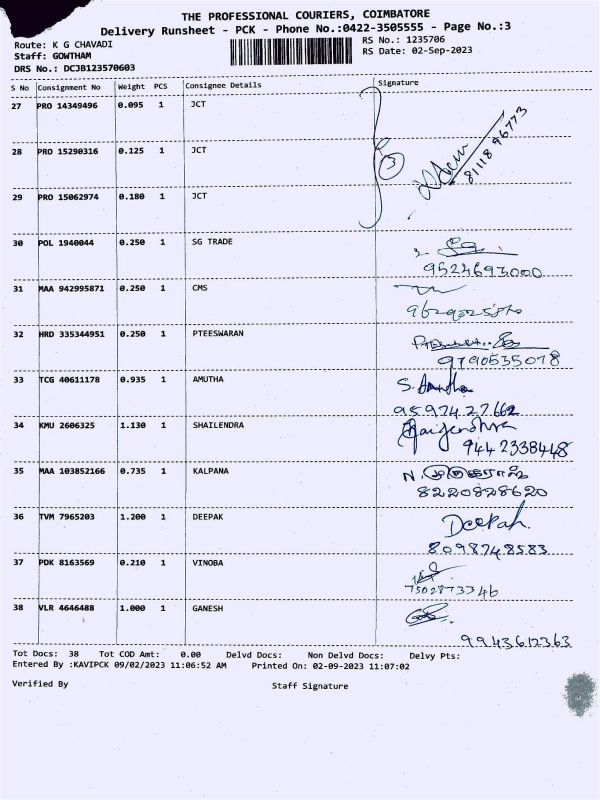 THE PROFESSIONAL COURIERS, COIMBATORE
Delivery Runsheet - PCK - Phone No.:0422-3505555 - Page No.:3
Route: K G CHAVADI RS No.: 1235706
Staff: GOWTHAM RS Date: 02-Sep-2023
DRS No.: DCJB123570603
S No Consignment No Weight PCS Consignee Details Signature
27 PRO 14349496 0.095 1 JCT
28 PRO 15290316 0.125 1 JCT 3 8111896773
29 PRO 15062974 0.180 1 JCT
30 POL 1940044 0.250 1 SG TRADE
9524693000
31 MAA 942995871 0.250 1 CMS
32 HRD 335344951 0.250 1 PTEESWARAN
9790535078
33 TCG 40611178 0.935 1 AMUTHA S. Amutha
95974 27662
34 KMU 2606325 1.130 1 SHAILENDRA
9442338448
35 MAA 103852166 0.735 1 KALPANA
8220828620
36 TVM 7965203 1.200 1 DEEPAK Deepak
8098748583
37 PDK 8163569 0.210 1 VINOBA
7502873346
38 VLR 4646488 1.000 1 GANESH
9943612363
Tot Docs: 38 Tot COD Amt: 0.00 Delvd Docs: Non Delvd Docs: Delvy Pts:
Entered By :KAVIPCK 09/02/2023 11:06:52 AM Printed On: 02-09-2023 11:07:02
Verified By Staff Signature